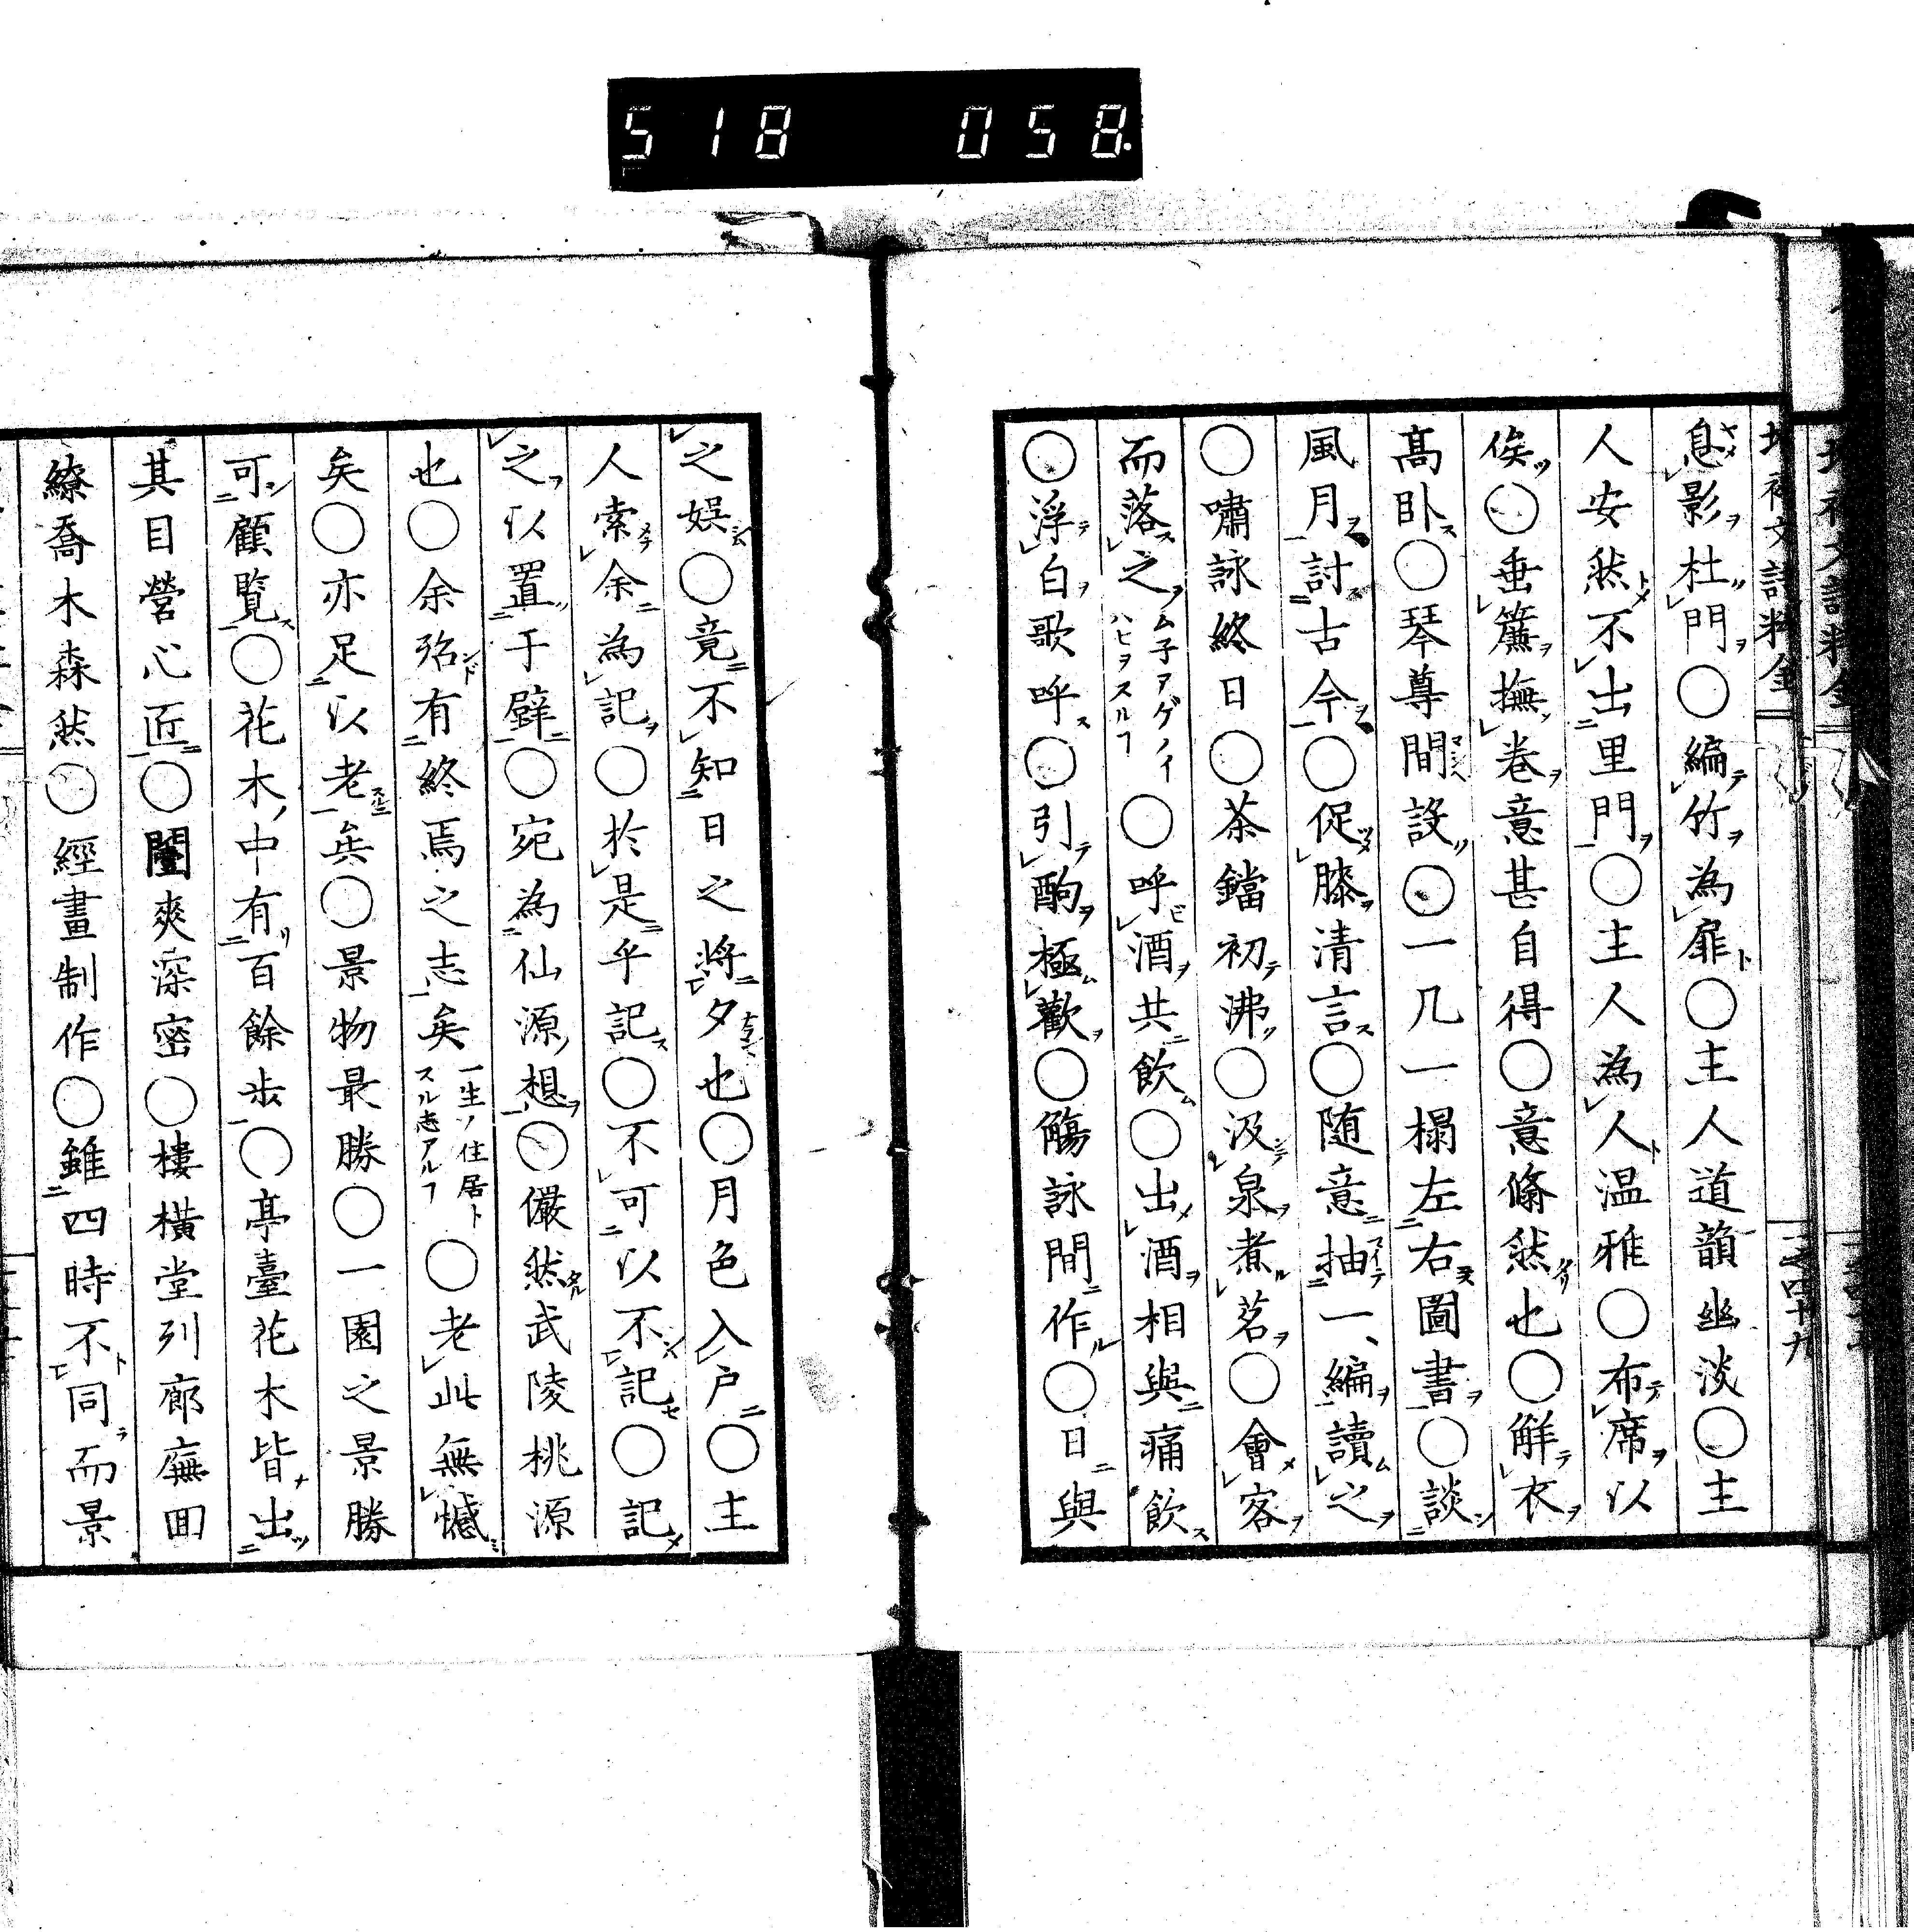 518 058.
息影杜門○編竹為扉○主人道韻幽淡○主
人安然不出里門○主人為人温雅○布席以
俟○垂簾撫卷意甚自得○意翛然也○解衣
高卧○琴尊間設○一几一榻左右圖書○談
風月討古今○促膝清言○随意抽一編讀之
○嘯詠終日○茶鐺初沸○汲泉煮茗○會客
而落之ム子アゲノイハヒヲスルヿ○呼酒共飲○出酒相與痛飲
○浮白歌呼○引酌極歡○觴詠間作○日與
之娯○竟不知日之將夕也○月色入戸○主
人索余為記○於是乎記○不可以不記○記
之以置于壁○宛為仙源想○儼然武陵桃源
也○余殆有終焉之志矣一生ノ住居トスル志アルヿ○老此無憾
矣○亦足以老矣○景物最勝○一園之景勝
可顧覧○花木中有百餘歩○亭臺花木皆出
其目營心匠○闓爽深密○樓横堂列廊廡回
繚喬木森然○經畫制作○雖四時不同而景